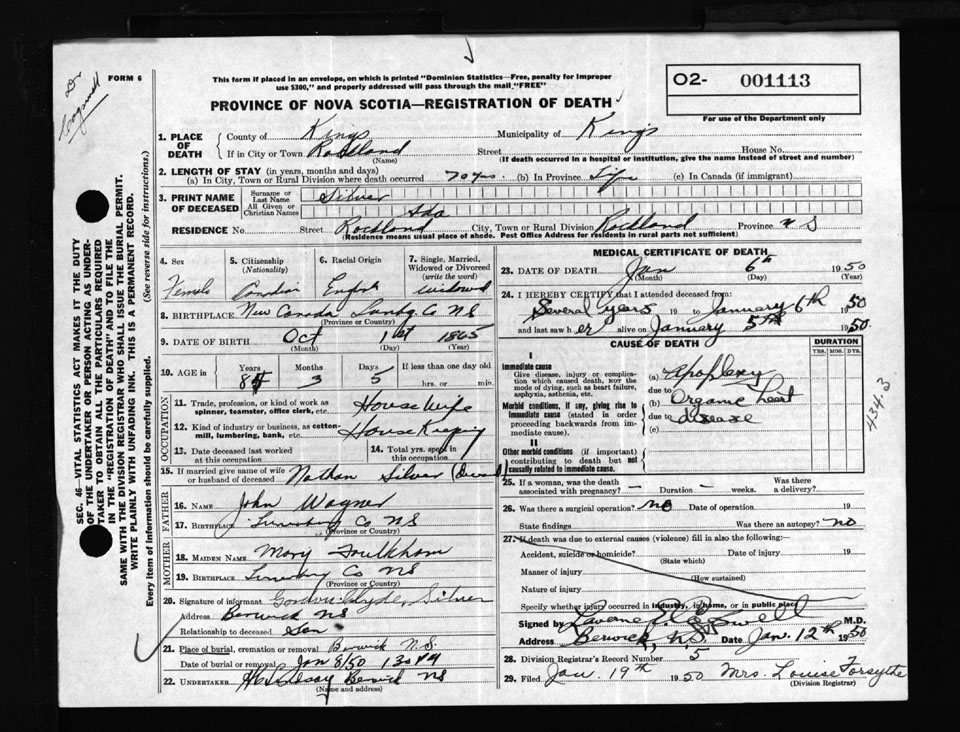 FORM 6
Dr Cogswell
This form if placed in an envelope, on which is printed "Dominion Statistics—Free, penalty for improper
use $300," and properly addressed will pass through the mail "FREE"
O2- 001113
For use of the Department only
PROVINCE OF NOVA SCOTIA—REGISTRATION OF DEATH
1. PLACE OF DEATH County of Kings Municipality of Kings
If in City or Town Rockland Street House No.
(Name) (If death occurred in a hospital or institution, give the name instead of street and number)
2. LENGTH OF STAY (in years, months and days)
(a) In City, Town or Rural Division where death occurred 70 yrs. (b) In Province Life (c) In Canada (if immigrant)
3. PRINT NAME OF DECEASED Surname or Last Name Silver
All Given or Christian Names Ada
RESIDENCE No. Street Rockland City, Town or Rural Division Rockland Province N S
(Residence means usual place of abode. Post Office Address for residents in rural parts not sufficient)
4. Sex Female
5. Citizenship (Nationality) Canadian
6. Racial Origin English
7. Single, Married, Widowed or Divorced (write the word) widowed
8. BIRTHPLACE New Canada Lunbg Co NS
(Province or Country)
9. DATE OF BIRTH Oct 1st 1865
(Month) (Day) (Year)
10. AGE in Years Months 3 Days 5 If less than one day old
hrs. or min.
OCCUPATION
11. Trade, profession, or kind of work as spinner, teamster, office clerk, etc. House Wife
12. Kind of industry or business, as cotton-mill, lumbering, bank, etc. House Keeping
13. Date deceased last worked at this occupation
14. Total yrs. spent in this occupation
15. If married give name of wife or husband of deceased Nathan Silver
FATHER
16. NAME John Wagner
17. BIRTHPLACE Lunenburg Co NS
(Province or Country)
MOTHER
18. MAIDEN NAME Mary
19. BIRTHPLACE Lunenburg Co NS
(Province or Country)
20. Signature of informant Gordon Clyde Silver
Address Berwick NS
Relationship to deceased Son
21. Place of burial, cremation or removal Berwick N.S.
Date of burial or removal Jan 8/50
22. UNDERTAKER Berwick NS
(Name and address)
MEDICAL CERTIFICATE OF DEATH
23. DATE OF DEATH Jan 6th 1950
(Month) (Day)
24. I HEREBY CERTIFY that I attended deceased from:
Several Years 19 to January 6th 1950
and last saw her alive on January 5th 1950.
CAUSE OF DEATH
DURATION
YRS. MOS. DYS.
I
Immediate cause
Give disease, injury or complication which caused death, NOT the mode of dying, such as heart failure, asphyxia, asthenia, etc.
(a) Apoplexy
due to
Morbid conditions, if any, giving rise to immediate cause (stated in order proceeding backwards from immediate cause).
(b) Organic heart
due to disease
(c)
II
Other morbid conditions (if important) contributing to death but not causally related to immediate cause.
434.3
25. If a woman, was the death associated with pregnancy? — Duration — weeks. Was there a delivery?
26. Was there a surgical operation? no Date of operation 19
State findings Was there an autopsy? no
27. If death was due to external causes (violence) fill in also the following:
Accident, suicide or homicide? Date of injury 19
(State which)
Manner of injury
(How sustained)
Nature of injury
Specify whether injury occurred in industry, in home, or in public place
Signed by M.D.
Address Berwick, N.S. Date Jan. 12th 1950
28. Division Registrar's Record Number 5
29. Filed Jan. 19th 1950 Mrs. Louise Forsythe
(Division Registrar)
SEC. 46—VITAL STATISTICS ACT MAKES IT THE DUTY
OF THE UNDERTAKER OR PERSON ACTING AS UNDER-
TAKER TO OBTAIN ALL THE PARTICULARS REQUIRED
IN THE "REGISTRATION OF DEATH" AND TO FILE THE
SAME WITH THE DIVISION REGISTRAR WHO SHALL ISSUE THE BURIAL PERMIT.
WRITE PLAINLY WITH UNFADING INK. THIS IS A PERMANENT RECORD.
Every item of information should be carefully supplied. (See reverse side for instructions.)